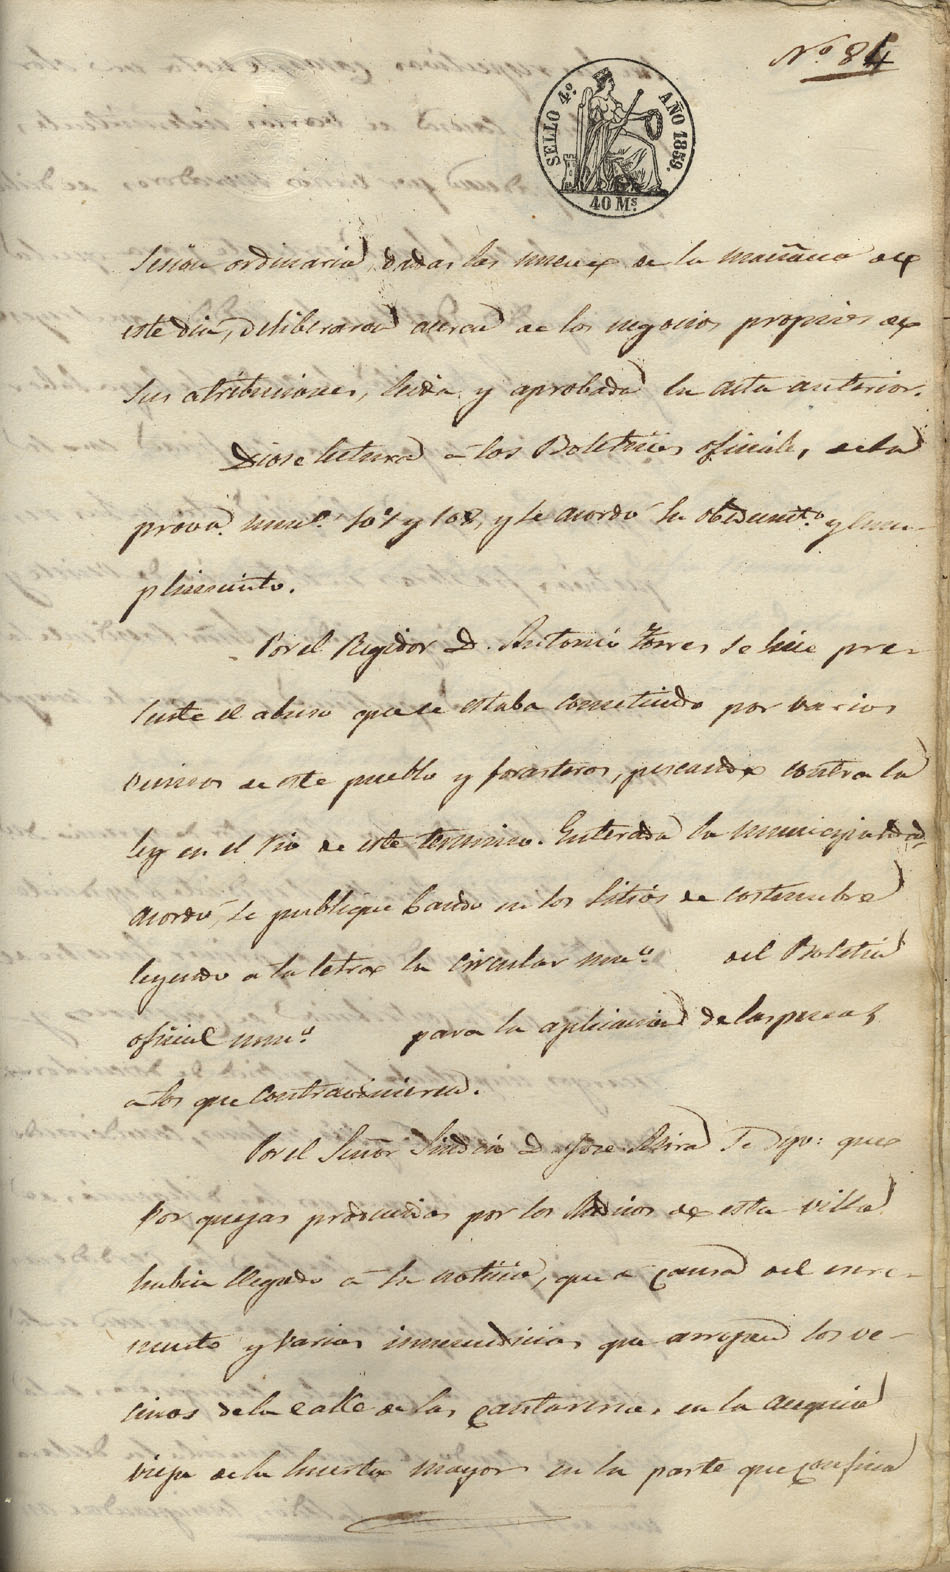 Nº 84
SELLO 4.º AÑO 1859.
40 Ms
Sesion ordinaria, dadas las nueve de la mañana de
este dia, deliberaron acerca de los negocios propios de
sus atribuciones, leida y aprobada la acta anterior.
Diose lectura á los Boletines oficiales, de la
prova. num.s 107 y 108, y se acordó su obedecimt.o y cum-
plimiento.
Por el Regidor D. Antonio Torres se hizo pre-
sente el abuso que se estaba cometiendo por varios
vecinos de este pueblo y forasteros, pescando contra la
ley en el rio de este termino. Enterada la municipalidad,
acordó, se publique bando en los sitios de costumbre
leyendo a la letra la circular num.o del Boletin
oficial num.o para la aplicacion de las penas
a los que contravinieren.
Por el Señor Sindico D. Jose Mira Se dijo: que
por quejas producidas por los Medicos de esta villa
habia llegado á su noticia, que á causa del
y varias inmundicias que arrojan los ve-
cinos de la calle de las Cantarerias en la acequia
vieja de la huerta mayor en la parte que confina